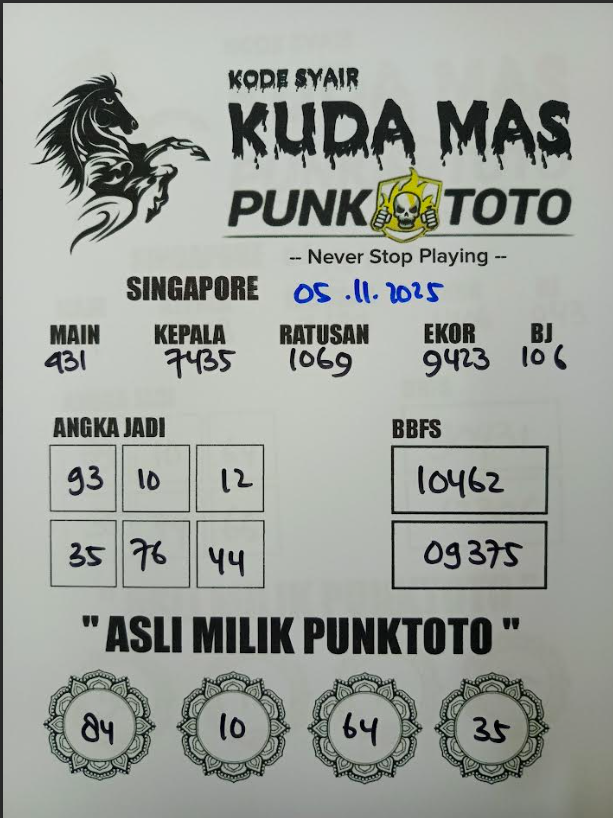 KODE SYAIR
KUDA MAS
PUNK TOTO
-- Never Stop Playing --
SINGAPORE 05.11.2025
MAIN KEPALA RATUSAN EKOR BJ
931 7435 1069 9423 106
ANGKA JADI BBFS
93 10 12 10462
35 76 44 09375
" ASLI MILIK PUNKTOTO "
84 10 64 35